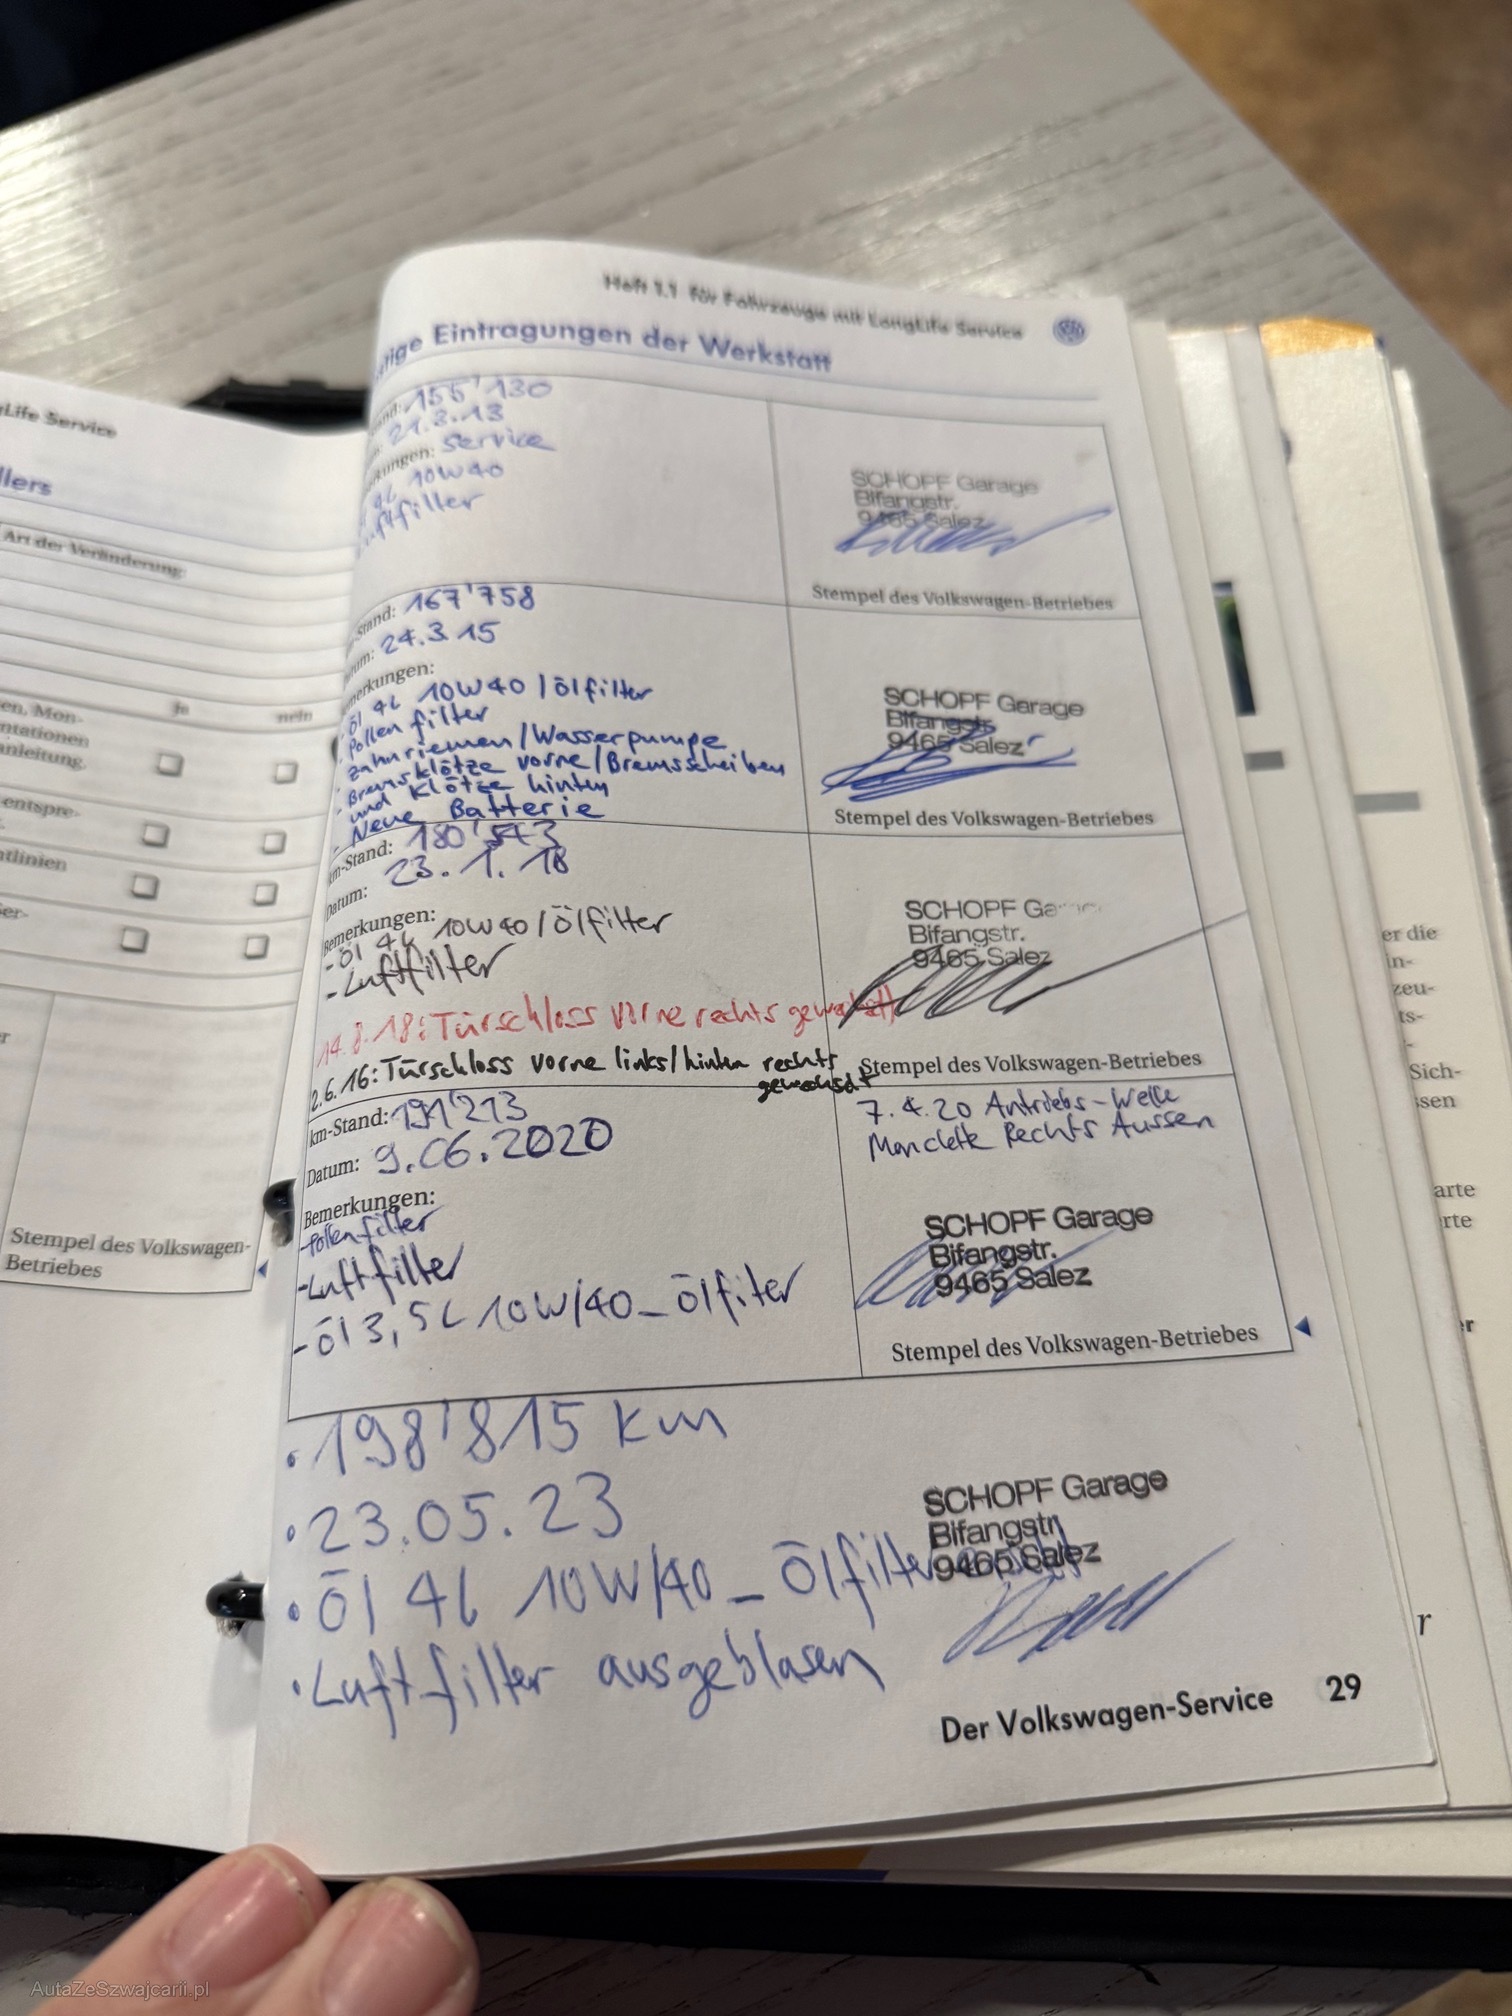 Heft 1.1 für Fahrzeuge mit LongLife Service
Eintragungen der Werkstatt
155'130
21.3.13
Service
4L 10W40
Luftfilter
SCHOPF Garage
Bifangstr.
9465 Salez
Stempel des Volkswagen-Betriebes
167'758
24.3.15
Öl 4L 10W40 / Ölfilter
Pollenfilter
Zahnriemen/Wasserpumpe
Bremsklötze vorne/Bremsscheiben
und Klötze hinten
- Neue Batterie
SCHOPF Garage
Bifangstr.
9465 Salez
Stempel des Volkswagen-Betriebes
km-Stand: 180'543
Datum: 23.1.18
Bemerkungen:
- Öl 4L 10W40 / Ölfilter
- Luftfilter
14.8.18: Türschloss vorne rechts
2.6.16: Türschloss vorne links/hinten rechts
SCHOPF
Bifangstr.
9465 Salez
Stempel des Volkswagen-Betriebes
km-Stand: 191'213
Datum: 9.06.2020
Bemerkungen:
- Pollenfilter
- Luftfilter
- Öl 3,5L 10W/40 _ Ölfiter
7.4.20 Antriebs-Welle
Manchette Rechts Aussen
SCHOPF Garage
Bifangstr.
9465 Salez
Stempel des Volkswagen-Betriebes
• 198'815 km
• 23.05.23
• Öl 4L 10W/40 _ Ölfilter
• Luftfilter ausgeblasen
SCHOPF Garage
Bifangstr.
9465 Salez
Der Volkswagen-Service 29
LongLife Service
Art der Veränderung
ja nein
Stempel des Volkswagen-
Betriebes
er die
AutaZeSzwajcarii.pl